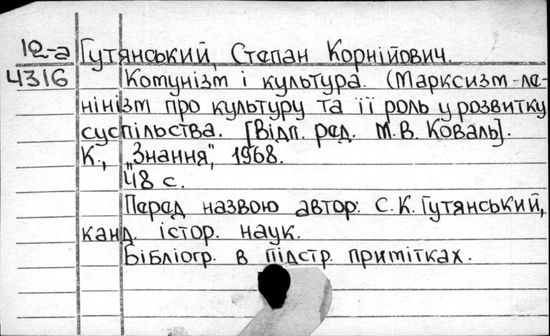 12-а Гутянський, Степан Корнійович.
4316 Комунізм і культура. (Марксизм-ле-
нінізм про культуру та її роль у розвитку
суспільства. [Відп. ред. М.В. Коваль].
К., "Знання", 1968.
48 с.
Перед назвою автор: С.К. Гутянський,
канд. істор. наук.
Бібліогр. в підстр. примітках.